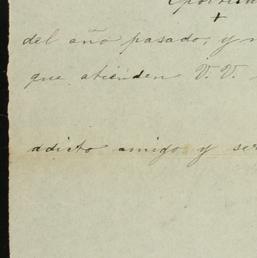 del año pasado, y
que atienden V. V.
addicto amigo y ser